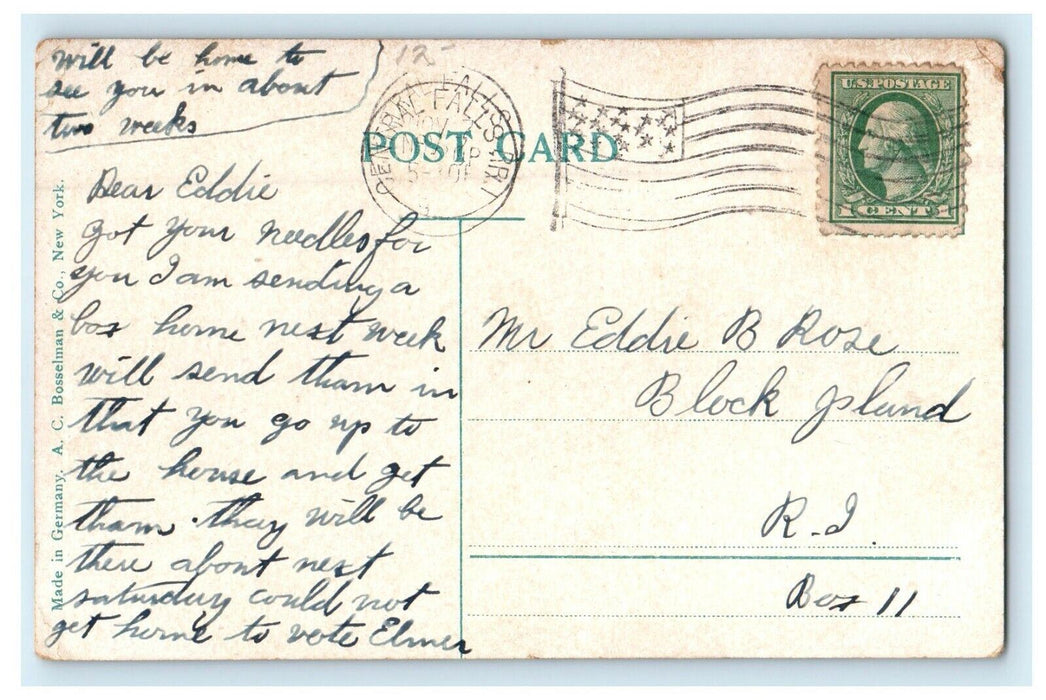 will be home to
see you in about
two weeks
12-
CENTRAL FALLS R.I.
NOV
POST CARD
U.S. POSTAGE
1 CENT 1
Dear Eddie
got your needles for
you I am sending a
box home next week
will send tham in
that you go up to
the house and get
tham. thay will be
there about next
saturday could not
get home to vote Elmer
Mr Eddie B Rose
Block Island
R.I.
Box 11
Made in Germany. A. C. Bosselman & Co., New York.